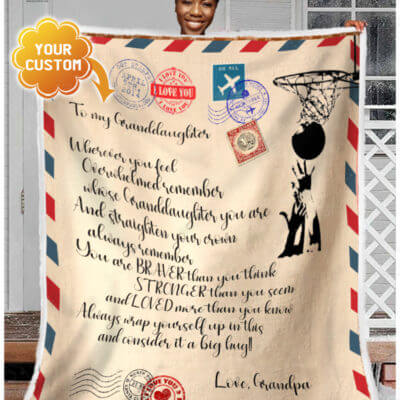 YOUR
CUSTOM
I LOVE YOU
I LOVE YOU
To my Granddaughter
Wherever you feel
Overwhelmed remember
whose Granddaughter you are
And straighten your crown
always remember
You are BRAVER than you think
STRONGER than you seem
and LOVED more than you know
Always wrap yourself up in this
and consider it a big hug!!
Love, Grandpa
I LOVE YOU